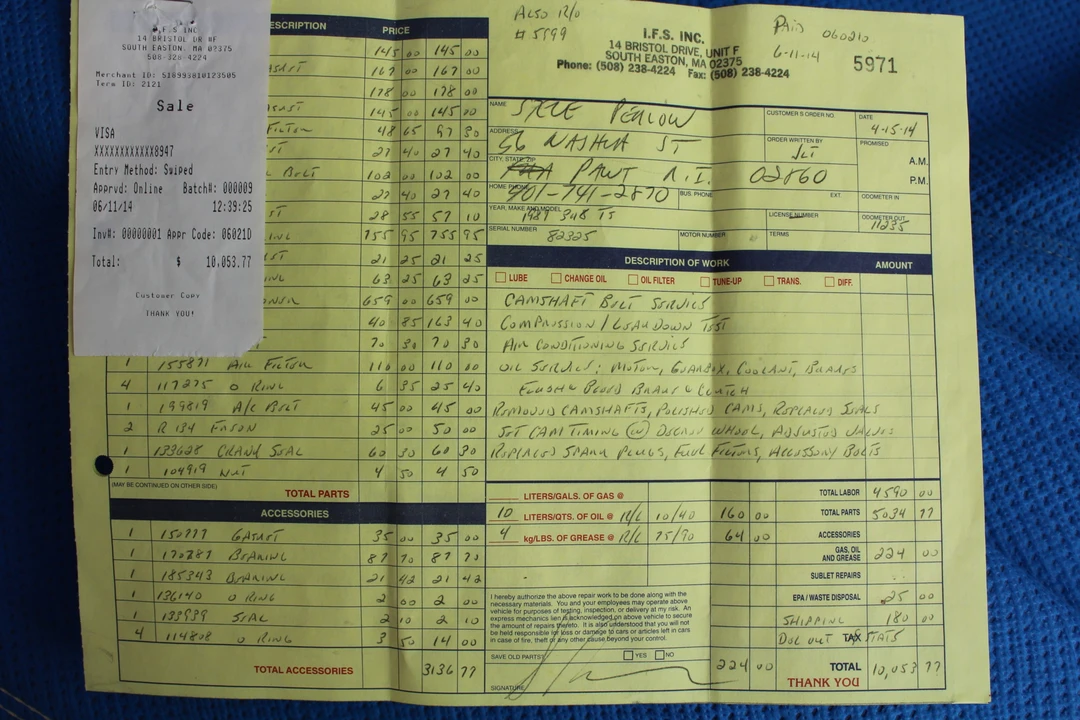 I.F.S. INC
14 BRISTOL DR #F
SOUTH EASTON, MA 02375
508-320-4224
Merchant ID: 518993810123505
Term ID: 2121
Sale
VISA
XXXXXXXXXXXX8947
Entry Method: Swiped
Apprvd: Online Batch#: 000009
06/11/14 12:39:25
Inv#: 00000001 Appr Code: 06021D
Total: $ 10,053.77
Customer Copy
THANK YOU!
PRICE
145 00 145 00
167 00 167 00
178 00 178 00
145 00 145 00
48 65 97 30
27 40 27 40
BELT 102 00 102 00
27 40 27 40
28 55 57 10
755 95 755 95
21 25 21 25
63 25 63 25
659 00 659 00
40 85 163 40
70 30 70 30
1 155871 AIR FILTER 110 00 110 00
4 117275 O RING 6 35 25 40
1 199819 A/C BELT 45 00 45 00
2 R 134 FREON 25 00 50 00
1 133628 CRANK SEAL 60 30 60 30
1 104919 NUT 4 50 4 50
(MAY BE CONTINUED ON OTHER SIDE) TOTAL PARTS
ACCESSORIES
1 150777 GASKET 35 00 35 00
1 170287 BEARING 87 70 87 70
1 185343 BEARING 21 42 21 42
1 136140 O RING 2 00 2 00
1 133939 SEAL 2 10 2 10
4 114808 O RING 3 50 14 00
TOTAL ACCESSORIES 3136 77
ALSO R/O
# 5999
PAID 060210
6-11-14
I.F.S. INC.
14 BRISTOL DRIVE, UNIT F
SOUTH EASTON, MA 02375
Phone: (508) 238-4224 Fax: (508) 238-4224
5971
NAME STEVE PERLOW
CUSTOMER'S ORDER NO.
DATE 4-15-14
ADDRESS 56 NASHUA ST
ORDER WRITTEN BY
PROMISED A.M.
P.M.
CITY, STATE, ZIP PAWT R.I. 02860
HOME PHONE 401-741-2870 BUS. PHONE EXT. ODOMETER IN
YEAR, MAKE AND MODEL 1989 348 TS LICENSE NUMBER ODOMETER OUT 11235
SERIAL NUMBER 82325 MOTOR NUMBER TERMS
DESCRIPTION OF WORK AMOUNT
LUBE CHANGE OIL OIL FILTER TUNE-UP TRANS. DIFF.
CAMSHAFT BELT SERVICE
COMPRESSION / LEAK DOWN TEST
AIR CONDITIONING SERVICE
OIL SERVICE: MOTOR, GEARBOX, COOLANT, BRAKES
FLUSH & BLEED BRAKE & CLUTCH
REMOVED CAMSHAFTS, POLISHED CAMS, REPLACED SEALS
SET CAM TIMING (W) DEGREE WHEEL, ADJUSTED VALVES
REPLACED SPARK PLUGS, FUEL FILTERS, ACCESSORY BELTS
LITERS/GALS. OF GAS @
10 LITERS/QTS. OF OIL @ R/L 10/40 160 00
4 kg/LBS. OF GREASE @ R/L 75/90 64 00
TOTAL LABOR 4590 00
TOTAL PARTS 5034 77
ACCESSORIES
GAS, OIL AND GREASE 224 00
SUBLET REPAIRS
EPA / WASTE DISPOSAL 25 00
SHIPPING 180 00
OUT TAX STATE
I hereby authorize the above repair work to be done along with the
necessary materials. You and your employees may operate above
vehicle for purposes of testing, inspection, or delivery at my risk. An
express mechanics lien is acknowledged on above vehicle to secure
the amount of repairs thereto. It is also understood that you will not
be held responsible for loss or damage to cars or articles left in cars
in case of fire, theft or any other cause beyond your control.
SAVE OLD PARTS? YES NO
SIGNATURE
224 00
TOTAL 10,053 77
THANK YOU